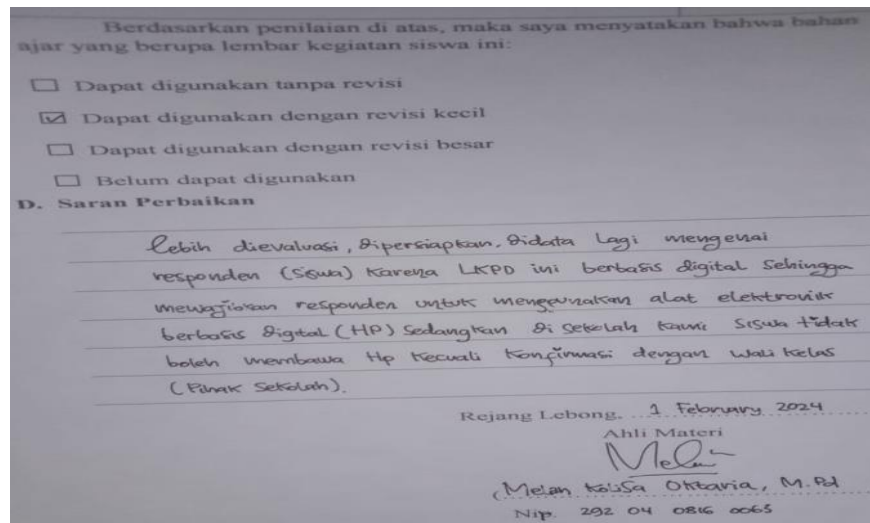 Berdasarkan penilaian di atas, maka saya menyatakan bahwa bahan
ajar yang berupa lembar kegiatan siswa ini:
Dapat digunakan tanpa revisi
Dapat digunakan dengan revisi kecil
Dapat digunakan dengan revisi besar
Belum dapat digunakan
D. Saran Perbaikan
Lebih dievaluasi, dipersiapkan, didata lagi mengenai
responden (siswa) karena LKPD ini berbasis digital Sehingga
mewajibkan responden untuk menggunakan alat elektronik
berbasis digital (HP) sedangkan di sekolah kami siswa tidak
boleh membawa Hp kecuali konfirmasi dengan wali kelas
(Pihak Sekolah).
Rejang Lebong, 1 February 2024
Ahli Materi
(Melan Oktaria, M.Pd
Nip. 292 04 0816 0065